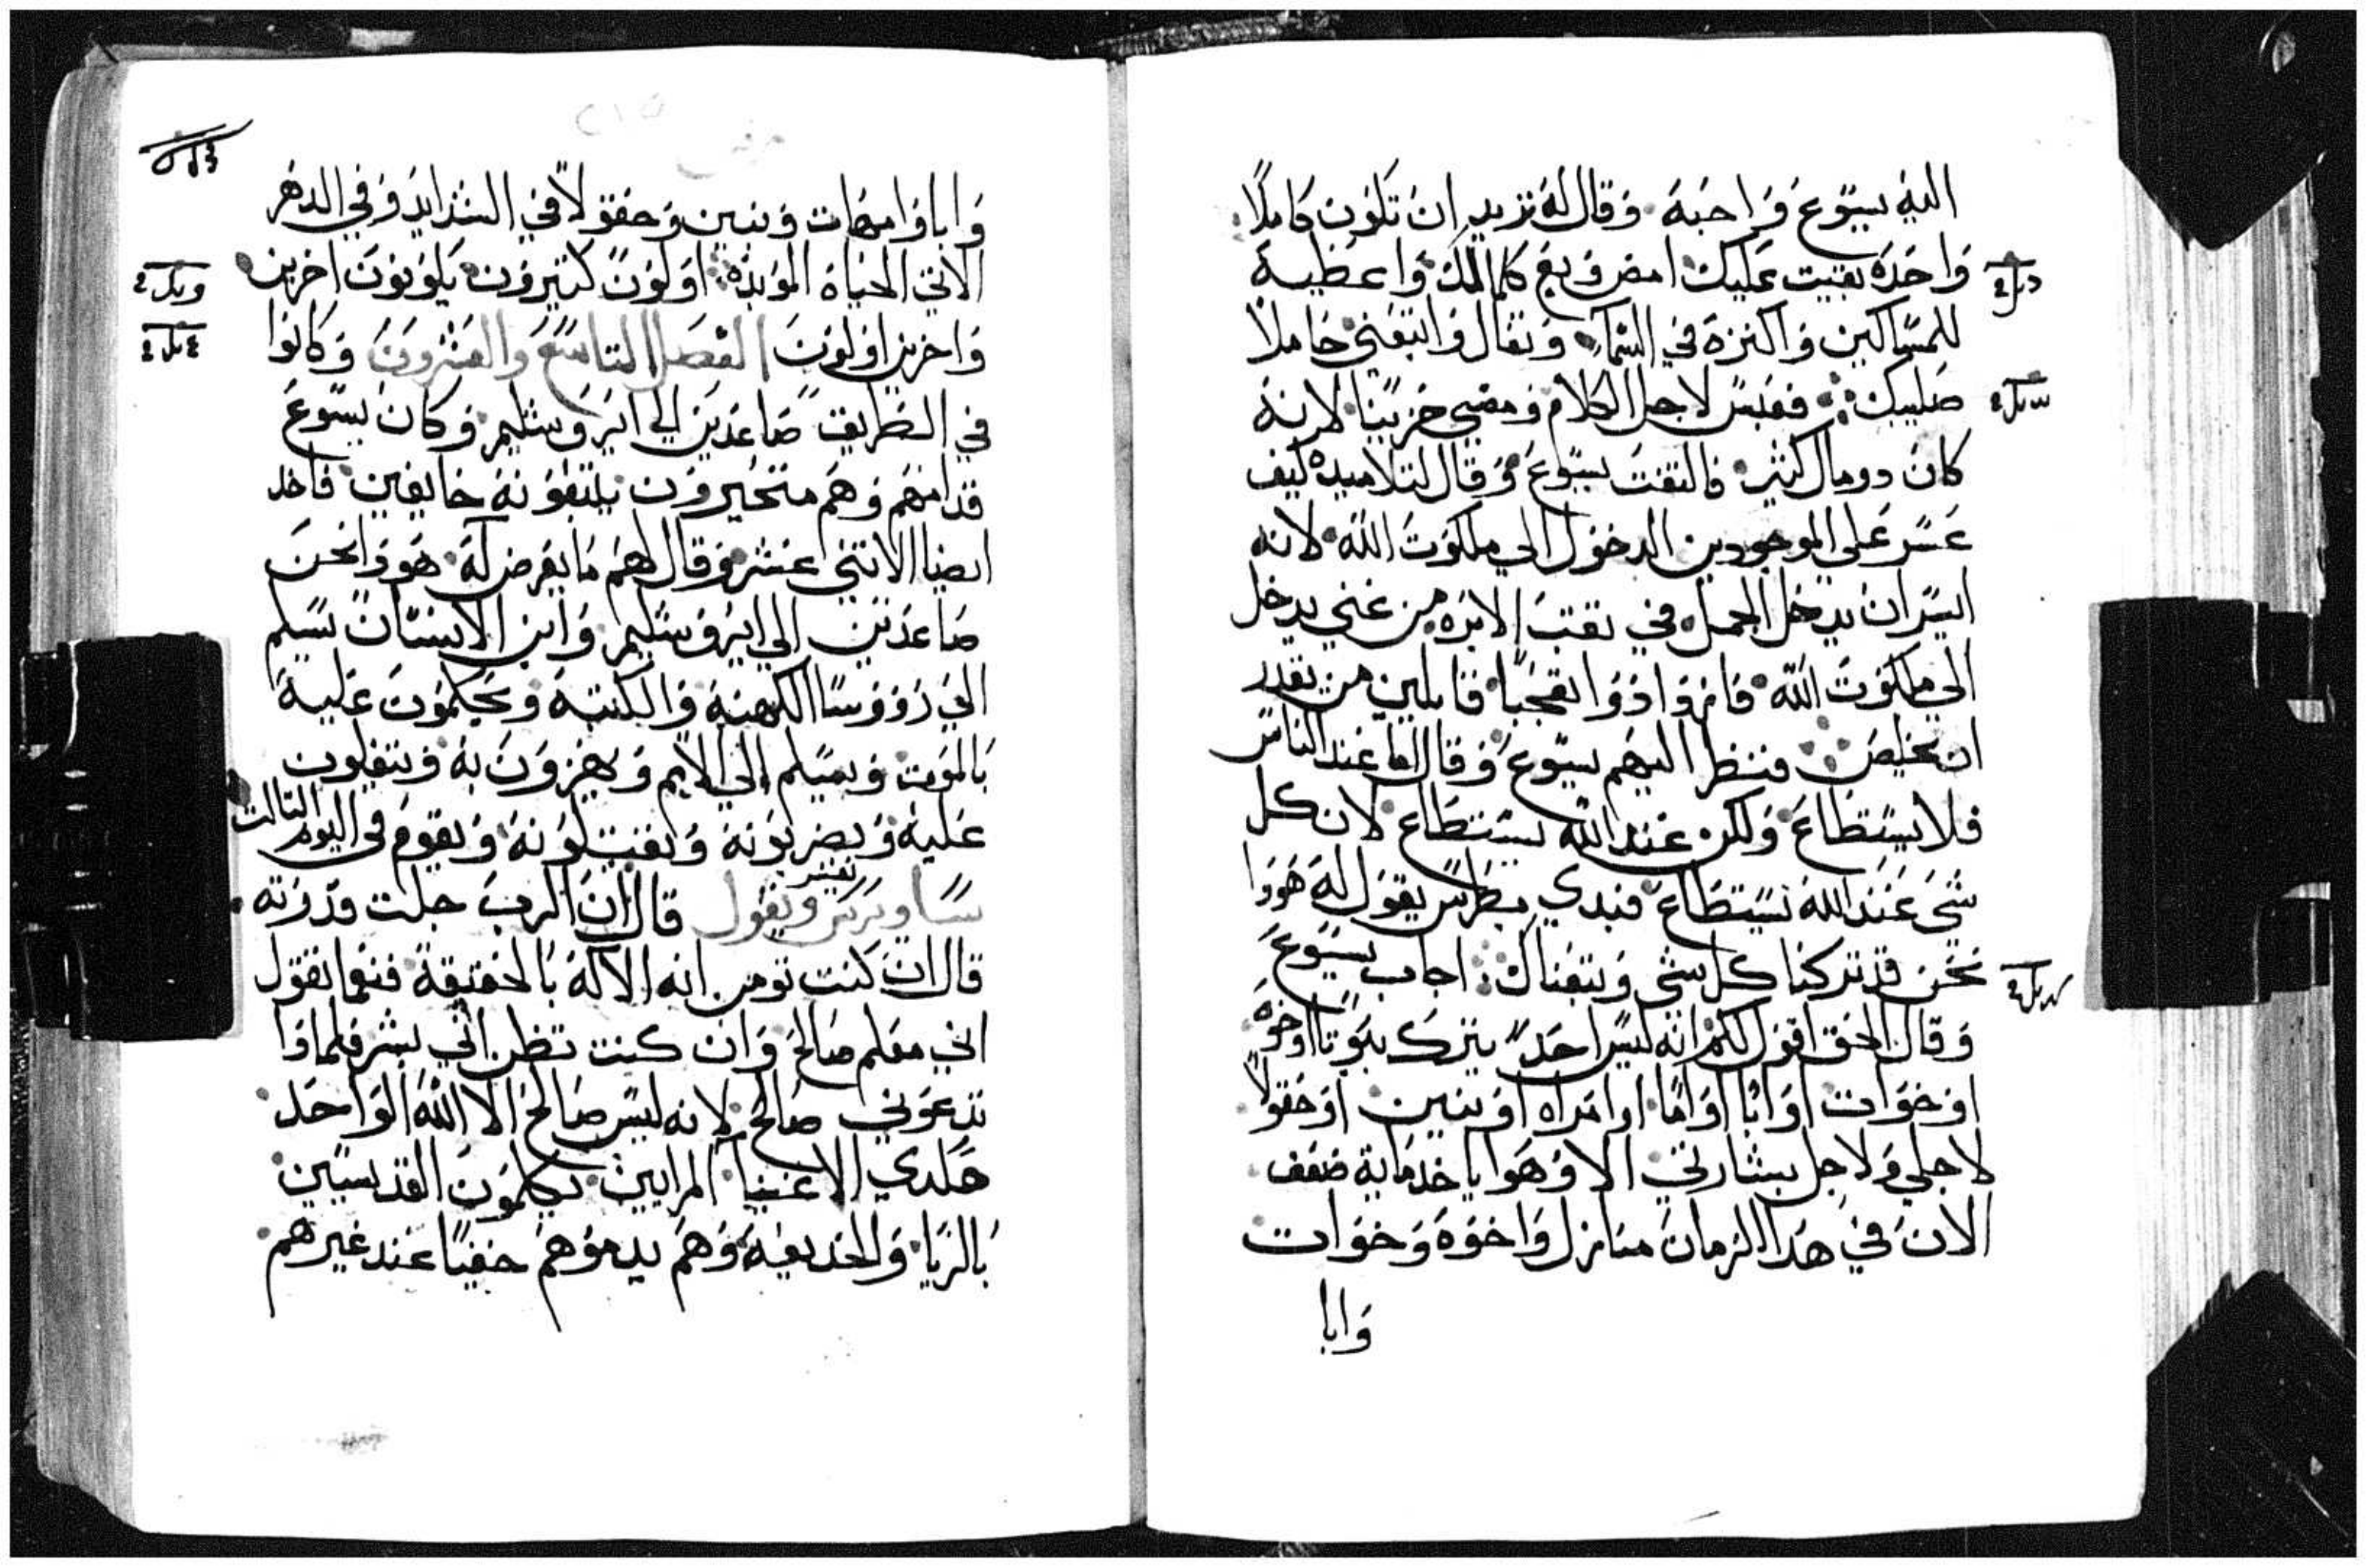 اليه يسوع واحبه وقال له تريد ان تكون كاملا
واحده بقيت عليك امض وبع كلما لك واعطيه
للمساكين واكنزه في السما وتعال واتبعني حاملا
صليبك فعبس لاجل الكلام ومضي حزينا لانه
كان دو مال كثير فالتفت يسوع وقال لتلاميده كيف
عسر علي الموجودين الدخول الي ملكوت الله لانه
ايسر ان يدخل الجمل في تقب الابره من غني يدخل
الي ملكوت الله فازدادوا تعجبا قايلين من يقدر
ان يخلص فنظر اليهم يسوع وقال اما عند الناس
فلا يستطاع ولكن عند الله يستطاع لان كل
شي عند الله يستطاع فبدي بطرس يقول له هودا
نحن قد تركنا كل شي وتبعناك اجاب يسوع
وقال الحق اقول لكم انه ليس احد يترك بيوتا او اخوه
او خوات او ابا او اما او امراه او بنين او حقولا
لاجلي ولاجل بشارتي الا وهو ياخد مايه ضعف
الان في هدا الزمان منازل واخوه وخوات
وابا
وابا وامهات وبنين وحقولا في الشدايد وفي الدهر
الاتي الحياه الموبده اولون كتيرون يكونون اخرين
واخرين اولون الفصل التاسع والعشرون وكانوا
في الطريق صاعدين الي ايروشليم وكان يسوع
قدامهم وهم متحيرون يتبعونه خايفين فاخد
ايضا الاتني عشر وقال لهم ما يعرض له هودا نحن
صاعدين الي ايروشليم وابن الانسان يسلم
الي رووسا الكهنه والكتبه ويحكمون عليه
بالموت ويسلم الي الامم ويهزون به ويتفلون
عليه ويضربونه ويقتلونه ويقوم في اليوم التالت
تفسير
ويقول قال ان الرب جلت قدرته
قال ان كنت تومن انه الاله بالحقيقة فنعما تقول
اني معلم صالح وان كنت تظن اني بشر فلمادا
تدعوني صالح لانه ليس صالح الا الله الواحد
هكدي الاغنيا المرايين يكلمون القديسين
بالريا والخديعه وهم يدموهم خفيا عند غيرهم